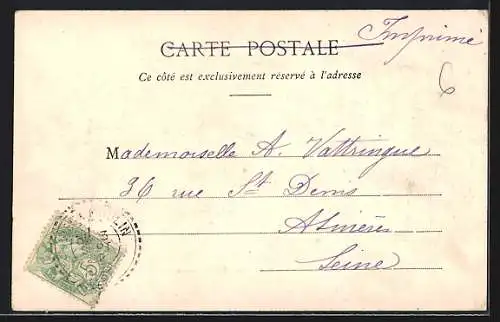 CARTE POSTALE
Imprimé
Ce côté est exclusivement réservé à l'adresse
6
Mademoiselle A. Vattringue
36 rue St Denis
Asnières
Seine